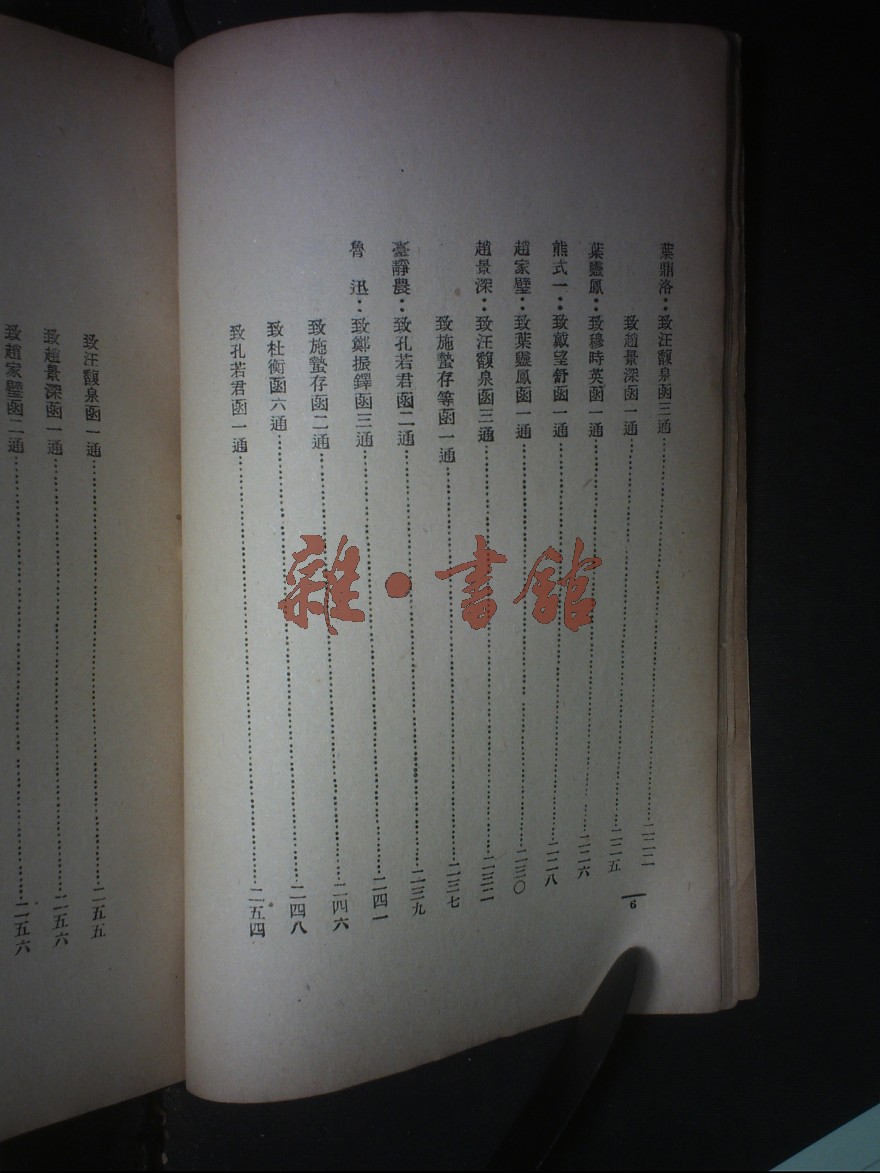 葉鼎洛：致汪馥泉函三通……二二二
致趙景深函一通……二二五
葉靈鳳：致穆時英函一通……二二六
熊式一：致戴望舒函一通……二二八
趙家璧：致葉靈鳳函一通……二三〇
趙景深：致汪馥泉函三通……二三二
致施蟄存等函一通……二三七
臺靜農：致孔若君函二通……二三九
魯迅：致鄭振鐸函三通……二四一
致施蟄存函二通……二四六
致杜衡函六通……二四八
致孔若君函一通……二五四
6
致汪馥泉函一通……二五五
致趙景深函一通……二五六
致趙家璧函二通……二五六
雜·書館